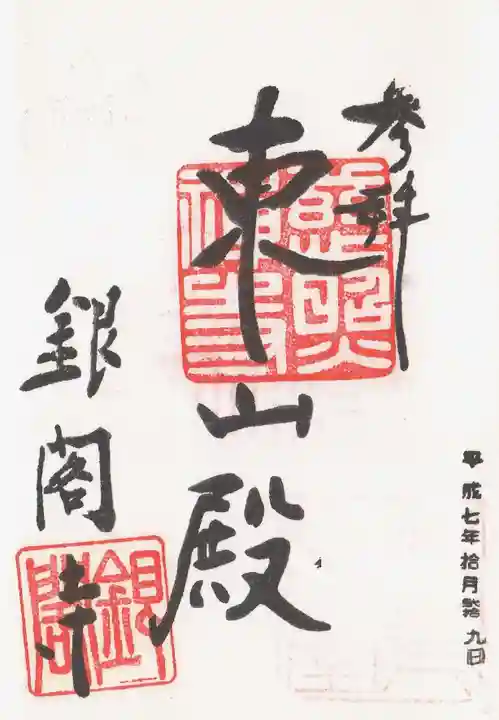 参拝
平成七年拾月 九日
東山殿
銀閣寺
慈照禅寺
銀閣